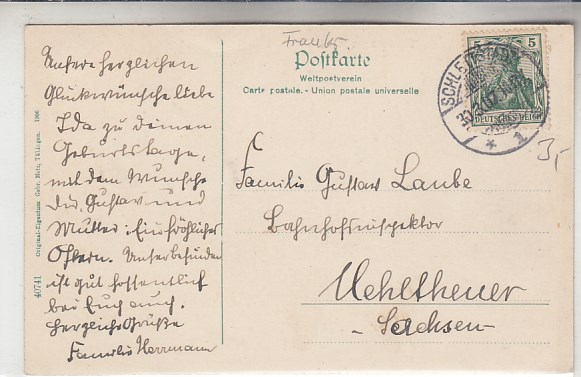 Frank5
Postkarte
Weltpostverein
Carte postale. - Union postale universelle
Unsere herzlichen
Glückwünsche liebe
Ida zu deinem
Geburtstage,
mit dem Wunsche
Dir, Gustav und
Mutter: Ein fröhliches
Ostern. Unser befinden
ist gut hoffentlich
bei Euch auch.
Herzliche Grüße
Familie Herrmann
Familie Gustav Laube
Bahnhofsinspektor
Mehltheuer
- Sachsen -
5 5
DEUTSCHES REICH
SCHLETTSTADT
* 1
3,-
Original-Eigentum Gebr. Metz, Tübingen. 1906
40741